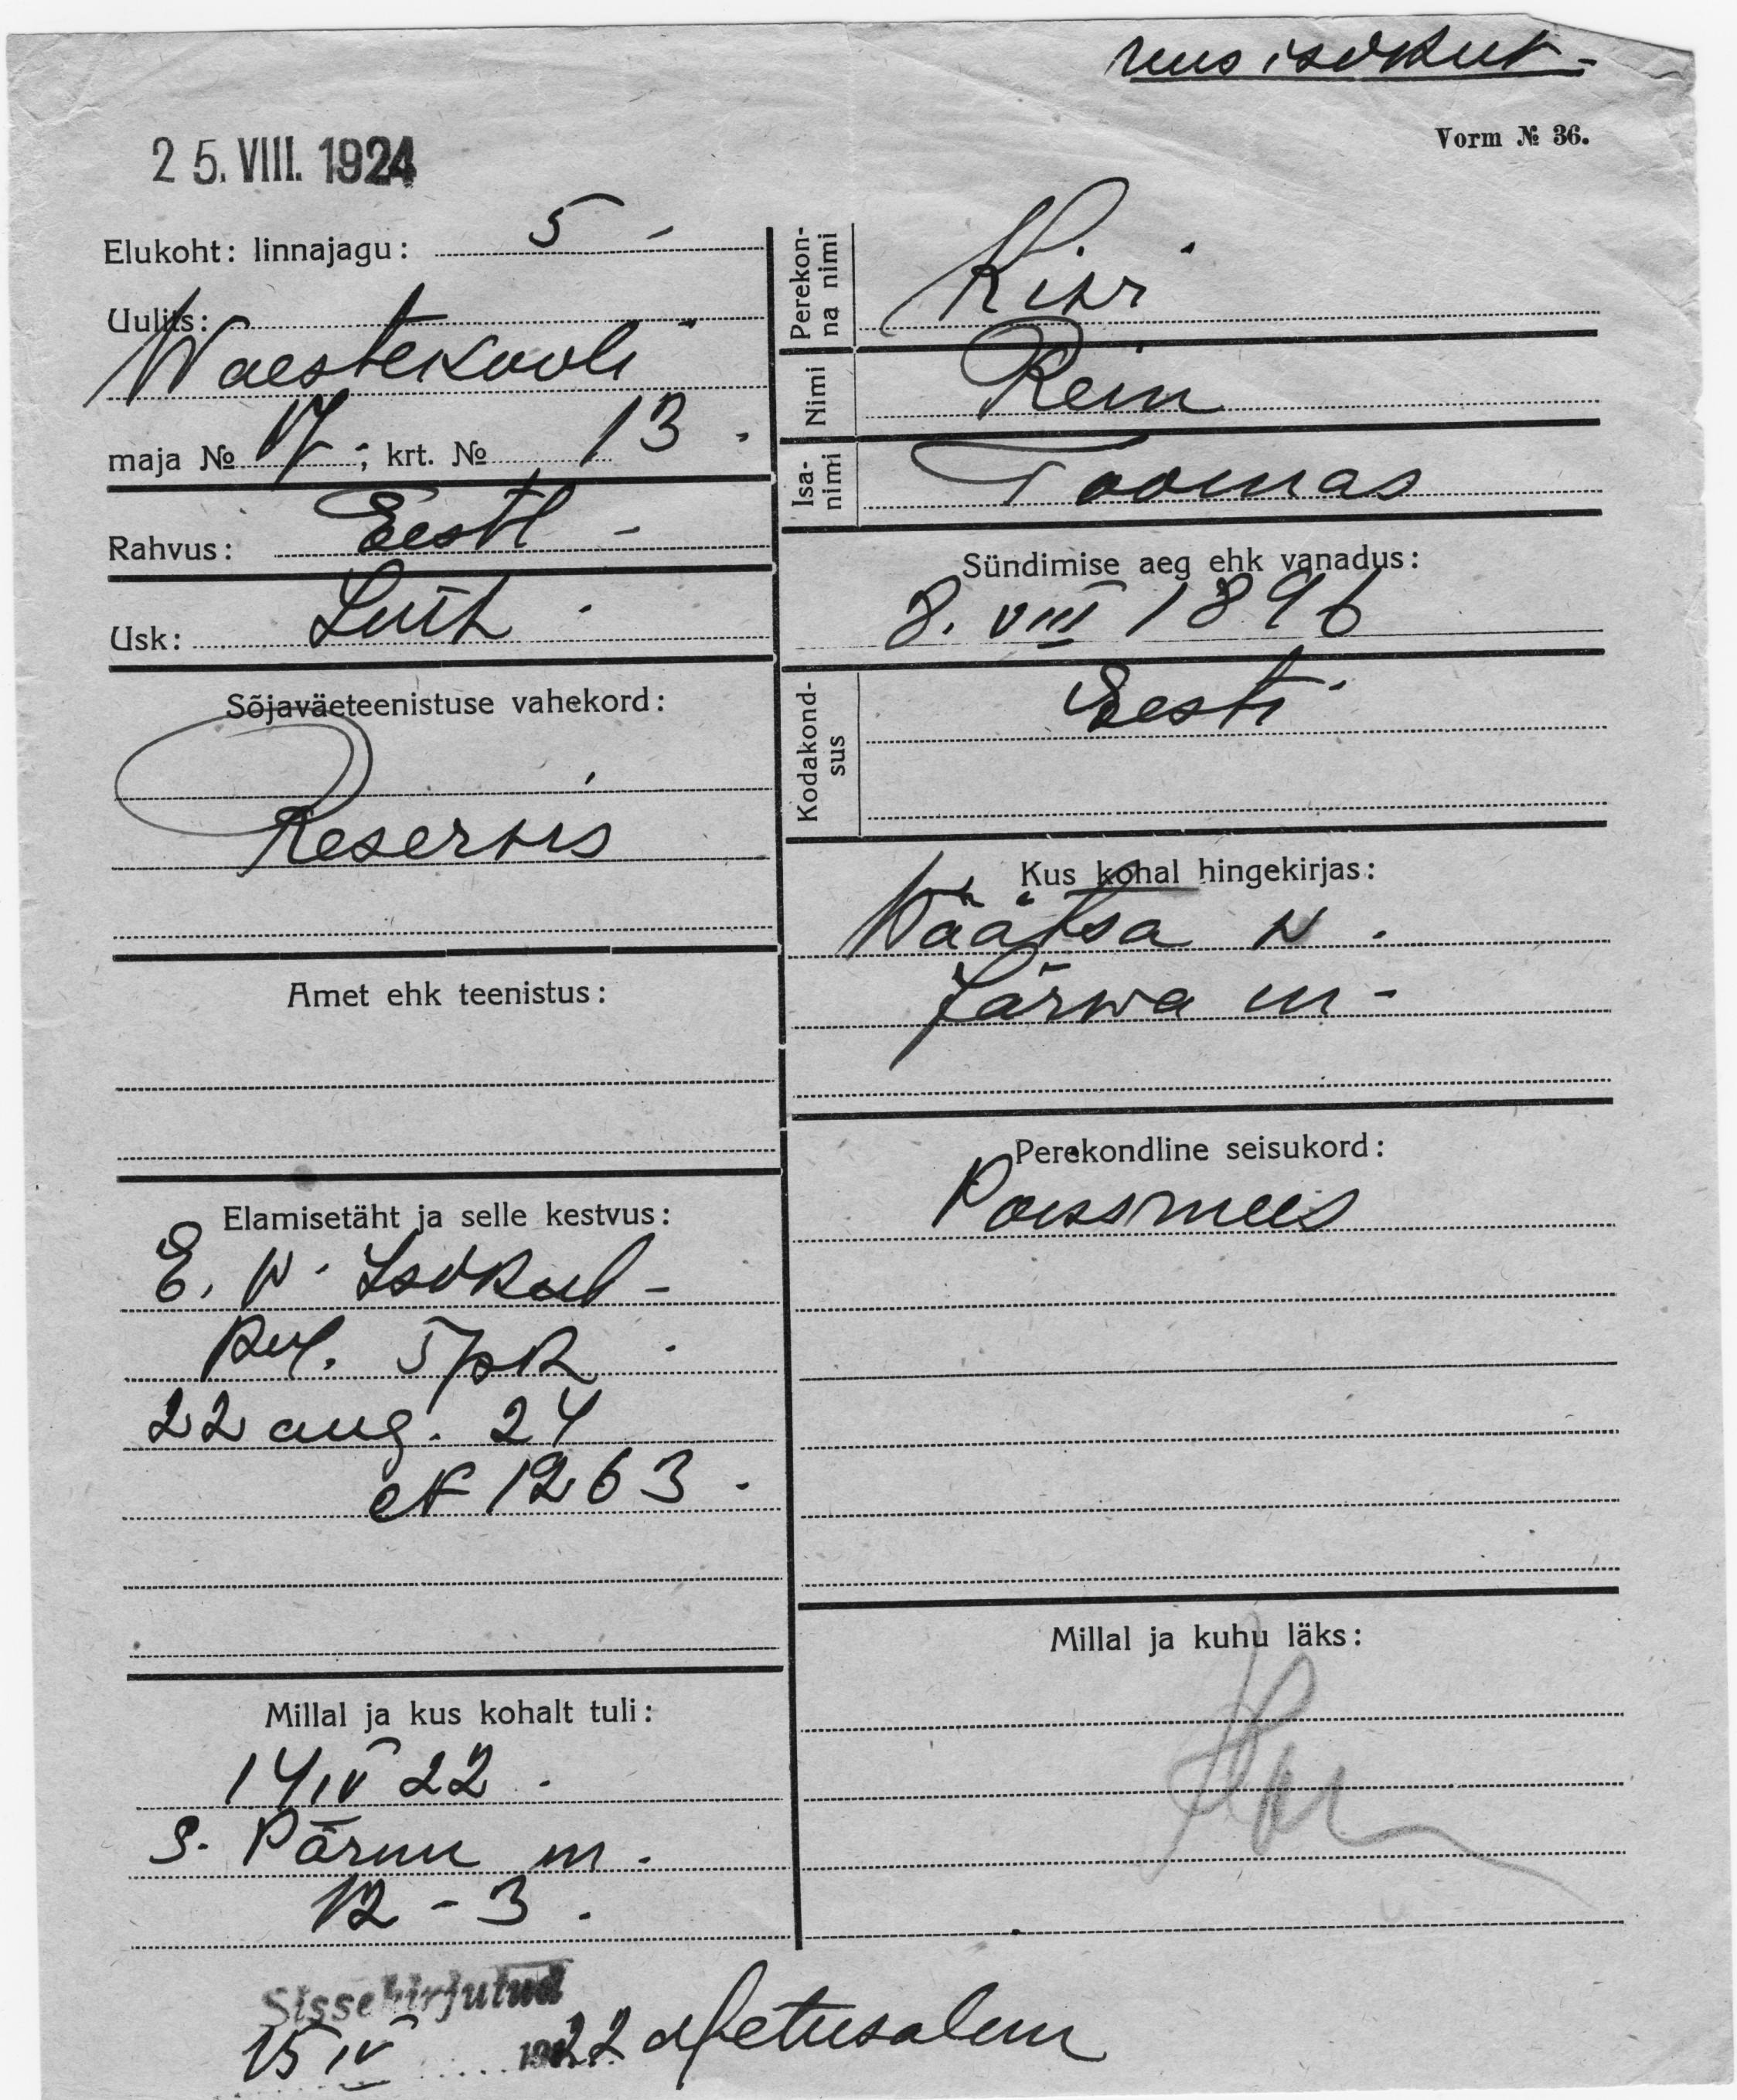 uus isikut -
Vorm № 36.
25. VIII. 1924
Elukoht: linnajagu: 5 -
Uulits:
Waestekooli
maja № 17 ; krt. № 13.
Rahvus: Eesti -
Usk: Luth.
Sõjaväeteenistuse vahekord:
Reservis
Amet ehk teenistus:
Elamisetäht ja selle kestvus:
E. W. Isikut -
5 jsk
22 aug. 24
№ 1263.
Millal ja kus kohalt tuli:
14 IV 22.
S. Pärnu m.
12 - 3.
Sissekirjutud
15 IV 1922 Metusalem
Perekonna nimi
Kiwi
Nimi
Rein
Isanimi
Toomas
Sündimise aeg ehk vanadus:
8. VIII 1896
Kodakondsus
Eesti
Kus kohal hingekirjas:
Wäätsa w.
Järwa m -
Perekondline seisukord:
Poissmees
Millal ja kuhu läks: